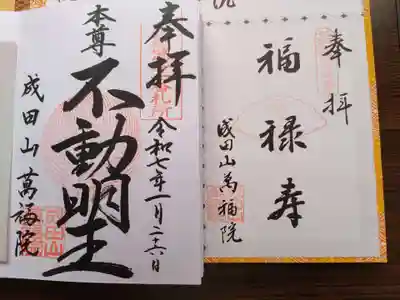 奉拝
令和七年一月二十六日
本尊
不動明王
成田山 萬福院
奉拝
福禄寿
成田山萬福院